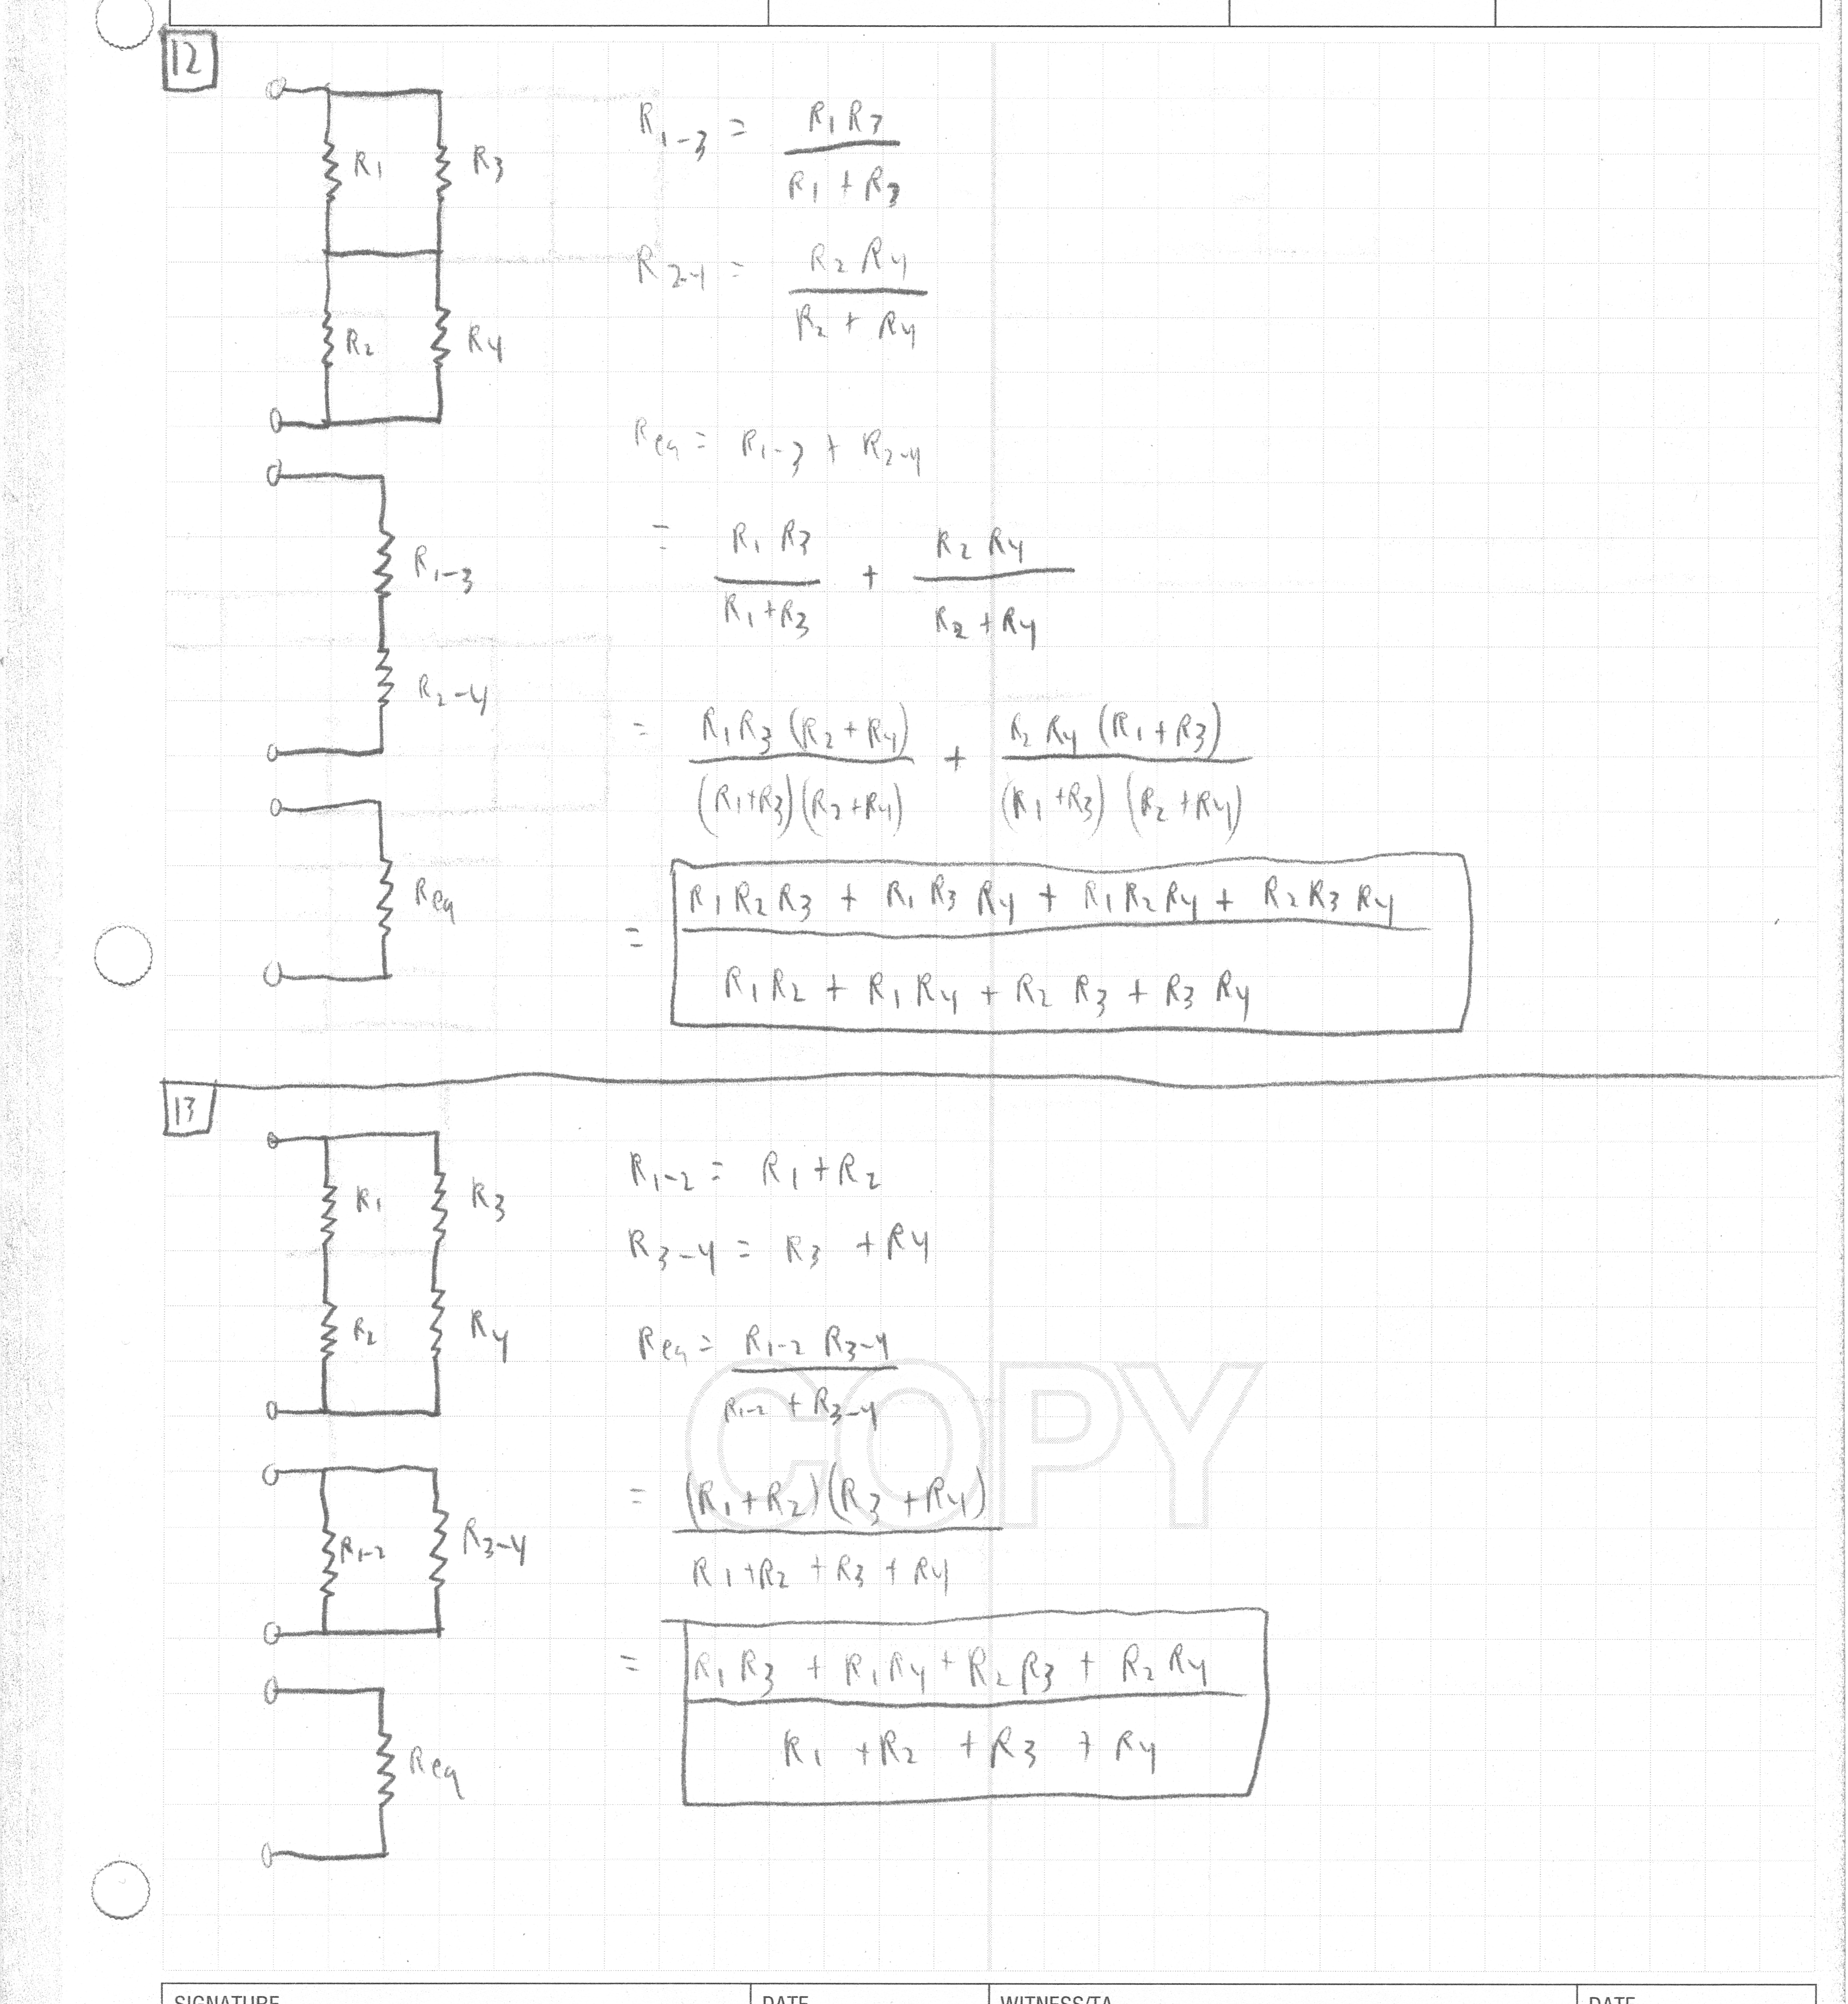 12
R1 R3
R2 R4
R1-3 = R1 R3 / R1 + R3
R2-4 = R2 R4 / R2 + R4
Req = R1-3 + R2-4
R1-3
= R1 R3 / R1+R3 + R2 R4 / R2+R4
R2-4
= R1 R3 (R2+R4) / (R1+R3)(R2+R4) + R2 R4 (R1+R3) / (R1+R3) (R2+R4)
Req
= R1 R2 R3 + R1 R3 R4 + R1 R2 R4 + R2 R3 R4 / R1 R2 + R1 R4 + R2 R3 + R3 R4
13
R1 R3
R2 R4
R1-2 = R1 + R2
R3-4 = R3 + R4
Req = R1-2 R3-4 / R1-2 + R3-4
COPY
R1-2 R3-4
= (R1+R2)(R3+R4) / R1+R2+R3+R4
= R1 R3 + R1 R4 + R2 R3 + R2 R4 / R1 + R2 + R3 + R4
Req
SIGNATURE DATE WITNESS/TA DATE